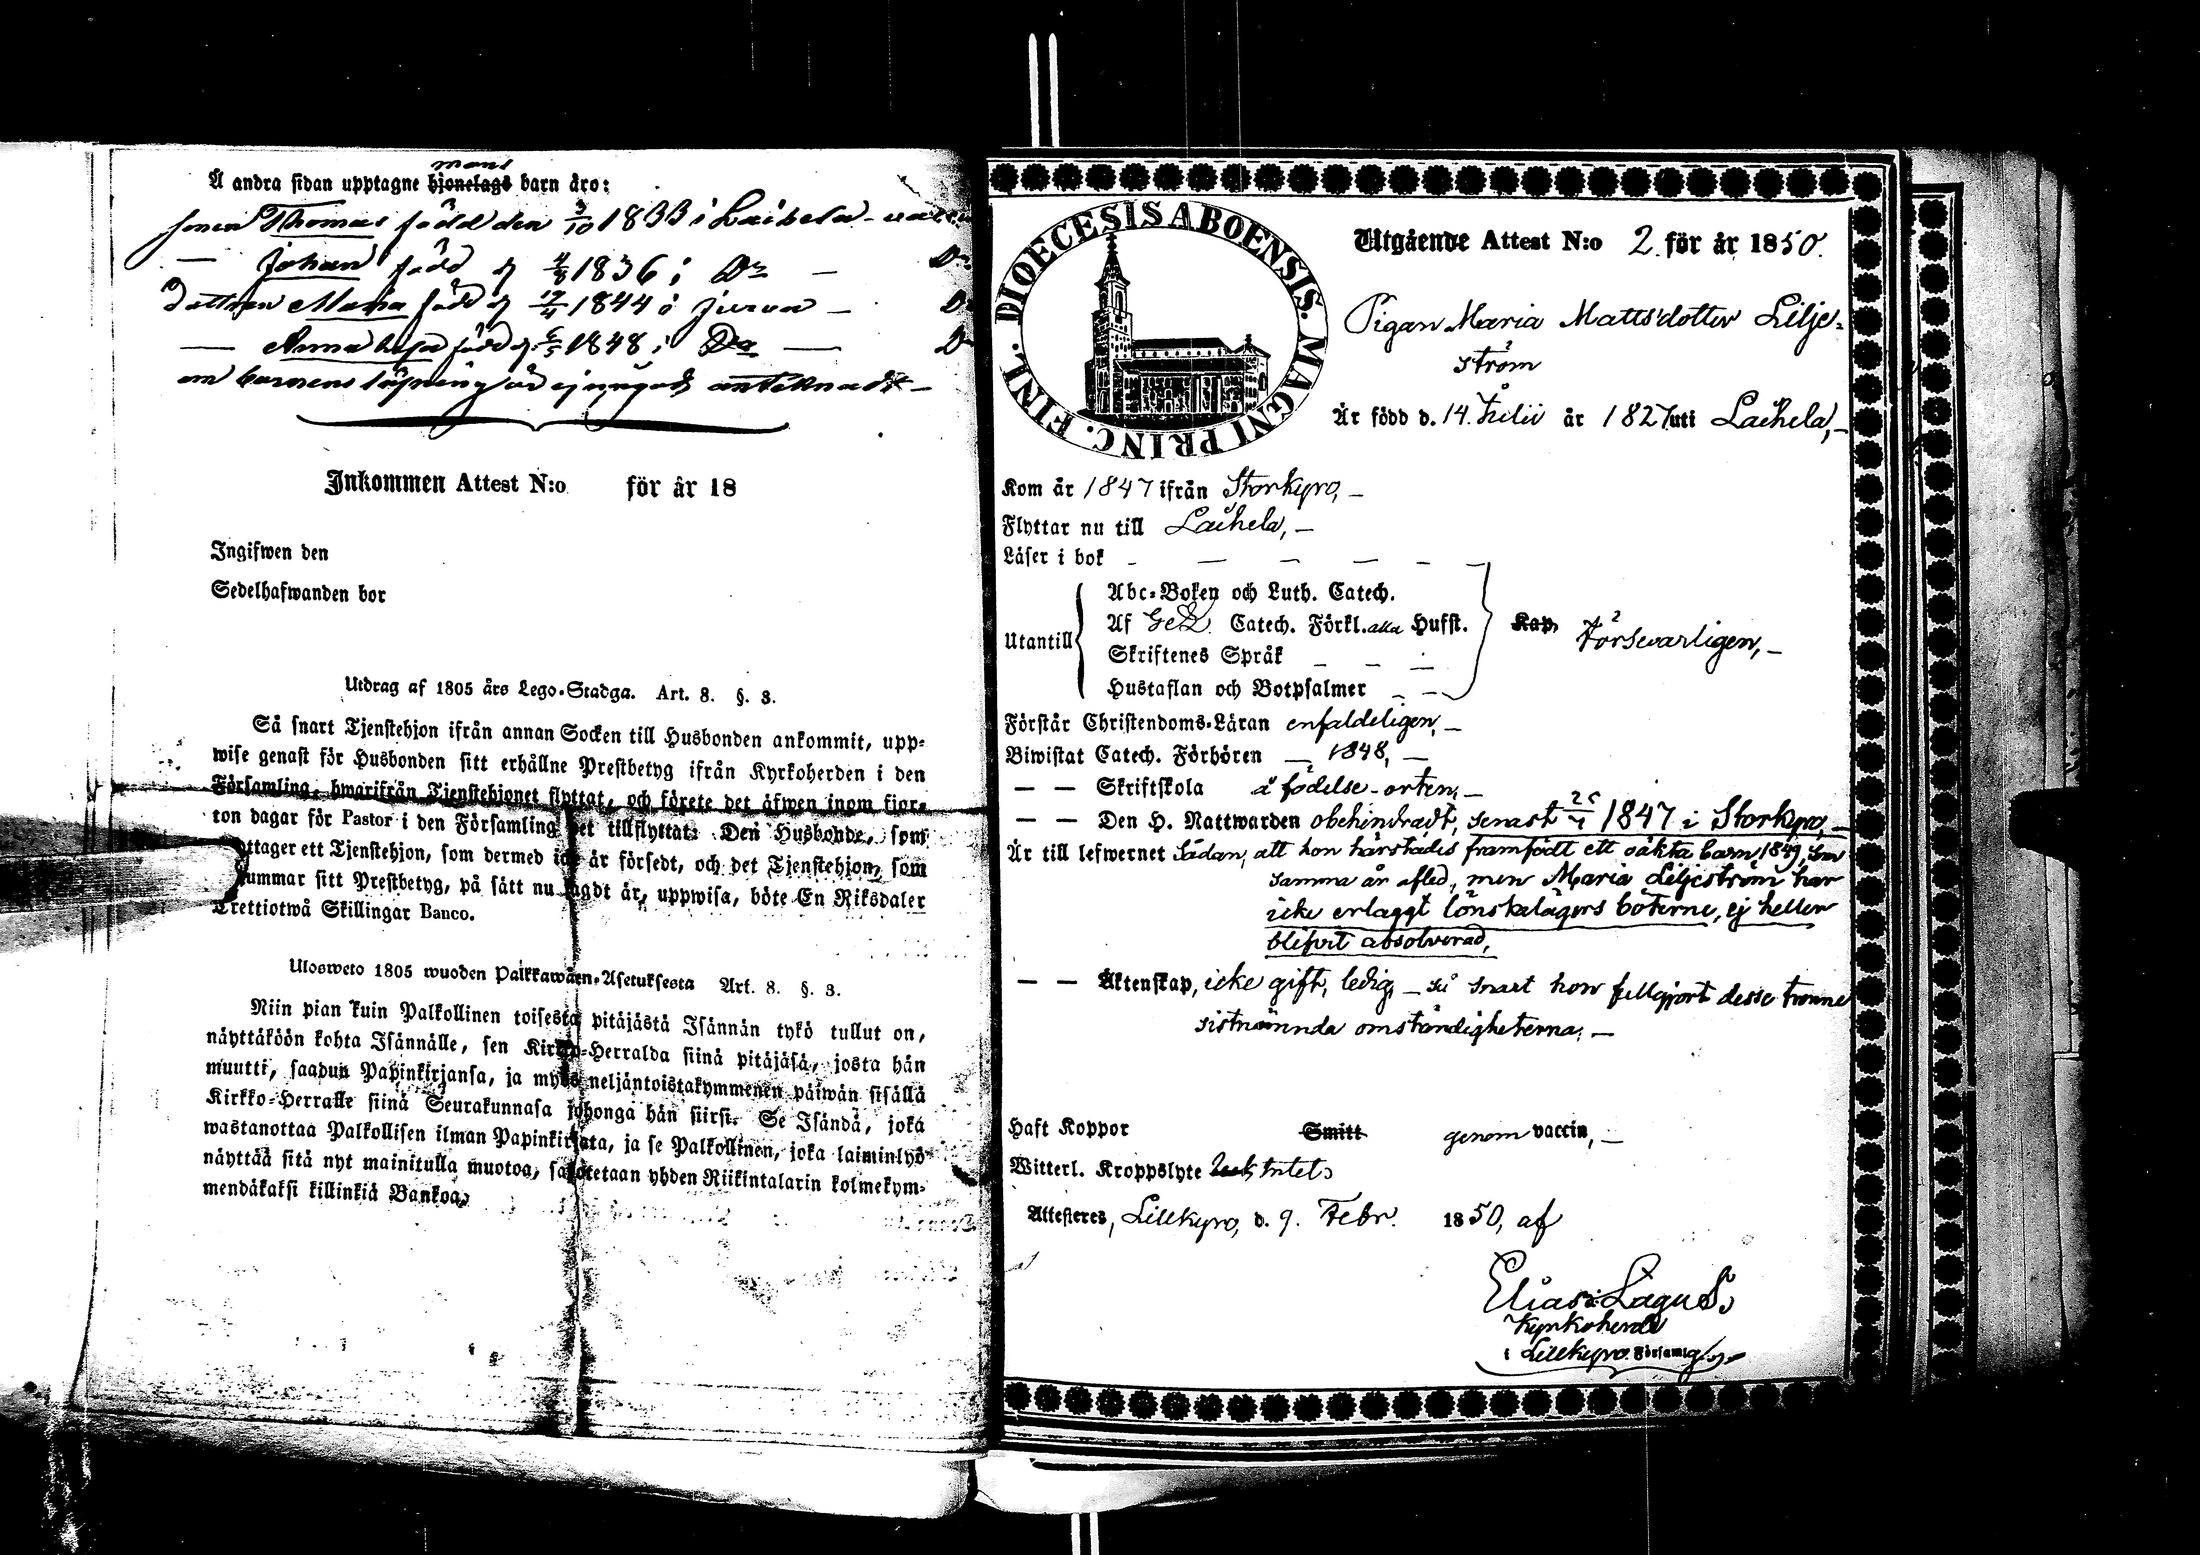 mans
Å andra sidan upptagne hjonelags barn äro:
sonen Thomas född den 3/10 1833 i Laihela -
— Johan född d 4/8 1836 i Do —
dottren Maria född d 17/4 1844 i Jurva —
— Anna Lisa född d. 1848 i Do —
om barnens läsning är ej något antecknadt —
Inkommen Attest N:o för år 18
Ingifwen den
Sedelhafwanden bor
Utdrag af 1805 års Lego-Stadga. Art. 8. §. 3.
Så snart Tjenstehjon ifrån annan Socken till Husbonden ankommit, upp-
wise genast för Husbonden sitt erhållne Prestbetyg ifrån Kyrkoherden i den
Församling, hwarifrån Tjenstehjonet flyttat, och förete det äfwen inom fjor-
ton dagar för Pastor i den Församling det tillflyttat. Den Husbonde, som
ttager ett Tjenstehjon, som dermed ick är försedt, och det Tjenstehjon, som
summar sitt Prestbetyg, på sätt nu sagdt är, uppwisa, böte En Riksdaler
Trettiotwå Skillingar Banco.
Ulosweto 1805 wuoden Palkkawäen-Asetuksesta Art. 8. §. 3.
Niin pian kuin Palkollinen toisesta pitäjästä Isännän tykö tullut on,
näyttäköön kohta Isännälle, sen Kirkko-Herralda siinä pitäjäsä, josta hän
muutti, saadun Papinkirjansa, ja myös neljäntoistakymmenen päiwän sisällä
Kirkko-Herralle siinä Seurakunnasa johonga hän siirsi. Se Isändä, joka
wastanottaa Palkollisen ilman Papinkirjata, ja se Palkollinen, joka laiminlyö
näyttää sitä nyt mainitulla muotoa, sakotetaan yhden Riikintalarin kolmekym-
mendäkaksi killinkiä Bankoa.
DIOECESIS ABOENSIS. MAGNI PRINC. FINL.
Utgående Attest N:o 2. för år 1850.
Pigan Maria Mattsdotter Lilje-
ström
Är född d. 14. Julii år 1827 uti Laihela, —
Kom år 1847 ifrån Storkyro, —
Flyttar nu till Laihela, —
Läser i bok - — — — — —
Abc-Boken och Luth. Catech.
Utantill Af Catech. Förkl. alla Hufst. Kap. Försvarligen, —
Skriftenes Språk — — —
Hustaflan och Botpsalmer — —
Förstår Christendoms-Läran enfaldeligen, —
Biwistat Catech. Förhören — 1848, —
— — Skriftskola å födelse-orten, —
— — Den H. Nattwarden obehindradt, senast 25/4 1847 i Storkyro, —
Är till lefwernet sådan, att hon härstädes framfödt ett oäkta barn 1849, som
samma år afled, men Maria Liljeström har
icke erlaggt lönskalägers böterne, ej heller
blifvit absolverad,
— — Äktenskap, icke gift, ledig, — så snart hon fullgjort desse tvenne
sistnämnda omständigheterna. —
Haft Koppor Smitt genom vaccin, —
Witterl. Kroppslyte Intet.
Attesteres, Lillkyro, d. 9. Febr. 1850, af
Elias Lagus,
Kyrkoherde
i Lillkyro Församlg.